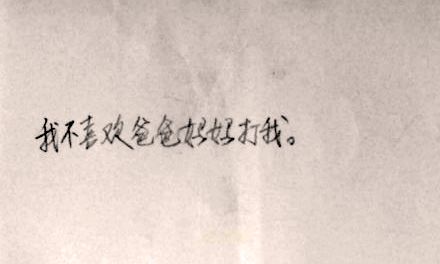 我不喜欢爸爸妈妈打我。